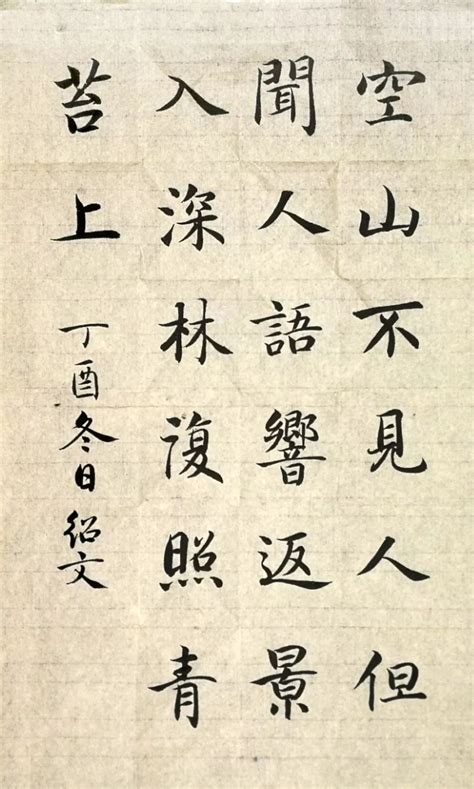 空山不見人但
聞人語響返景
入深林復照青
苔上
丁酉冬日紹文